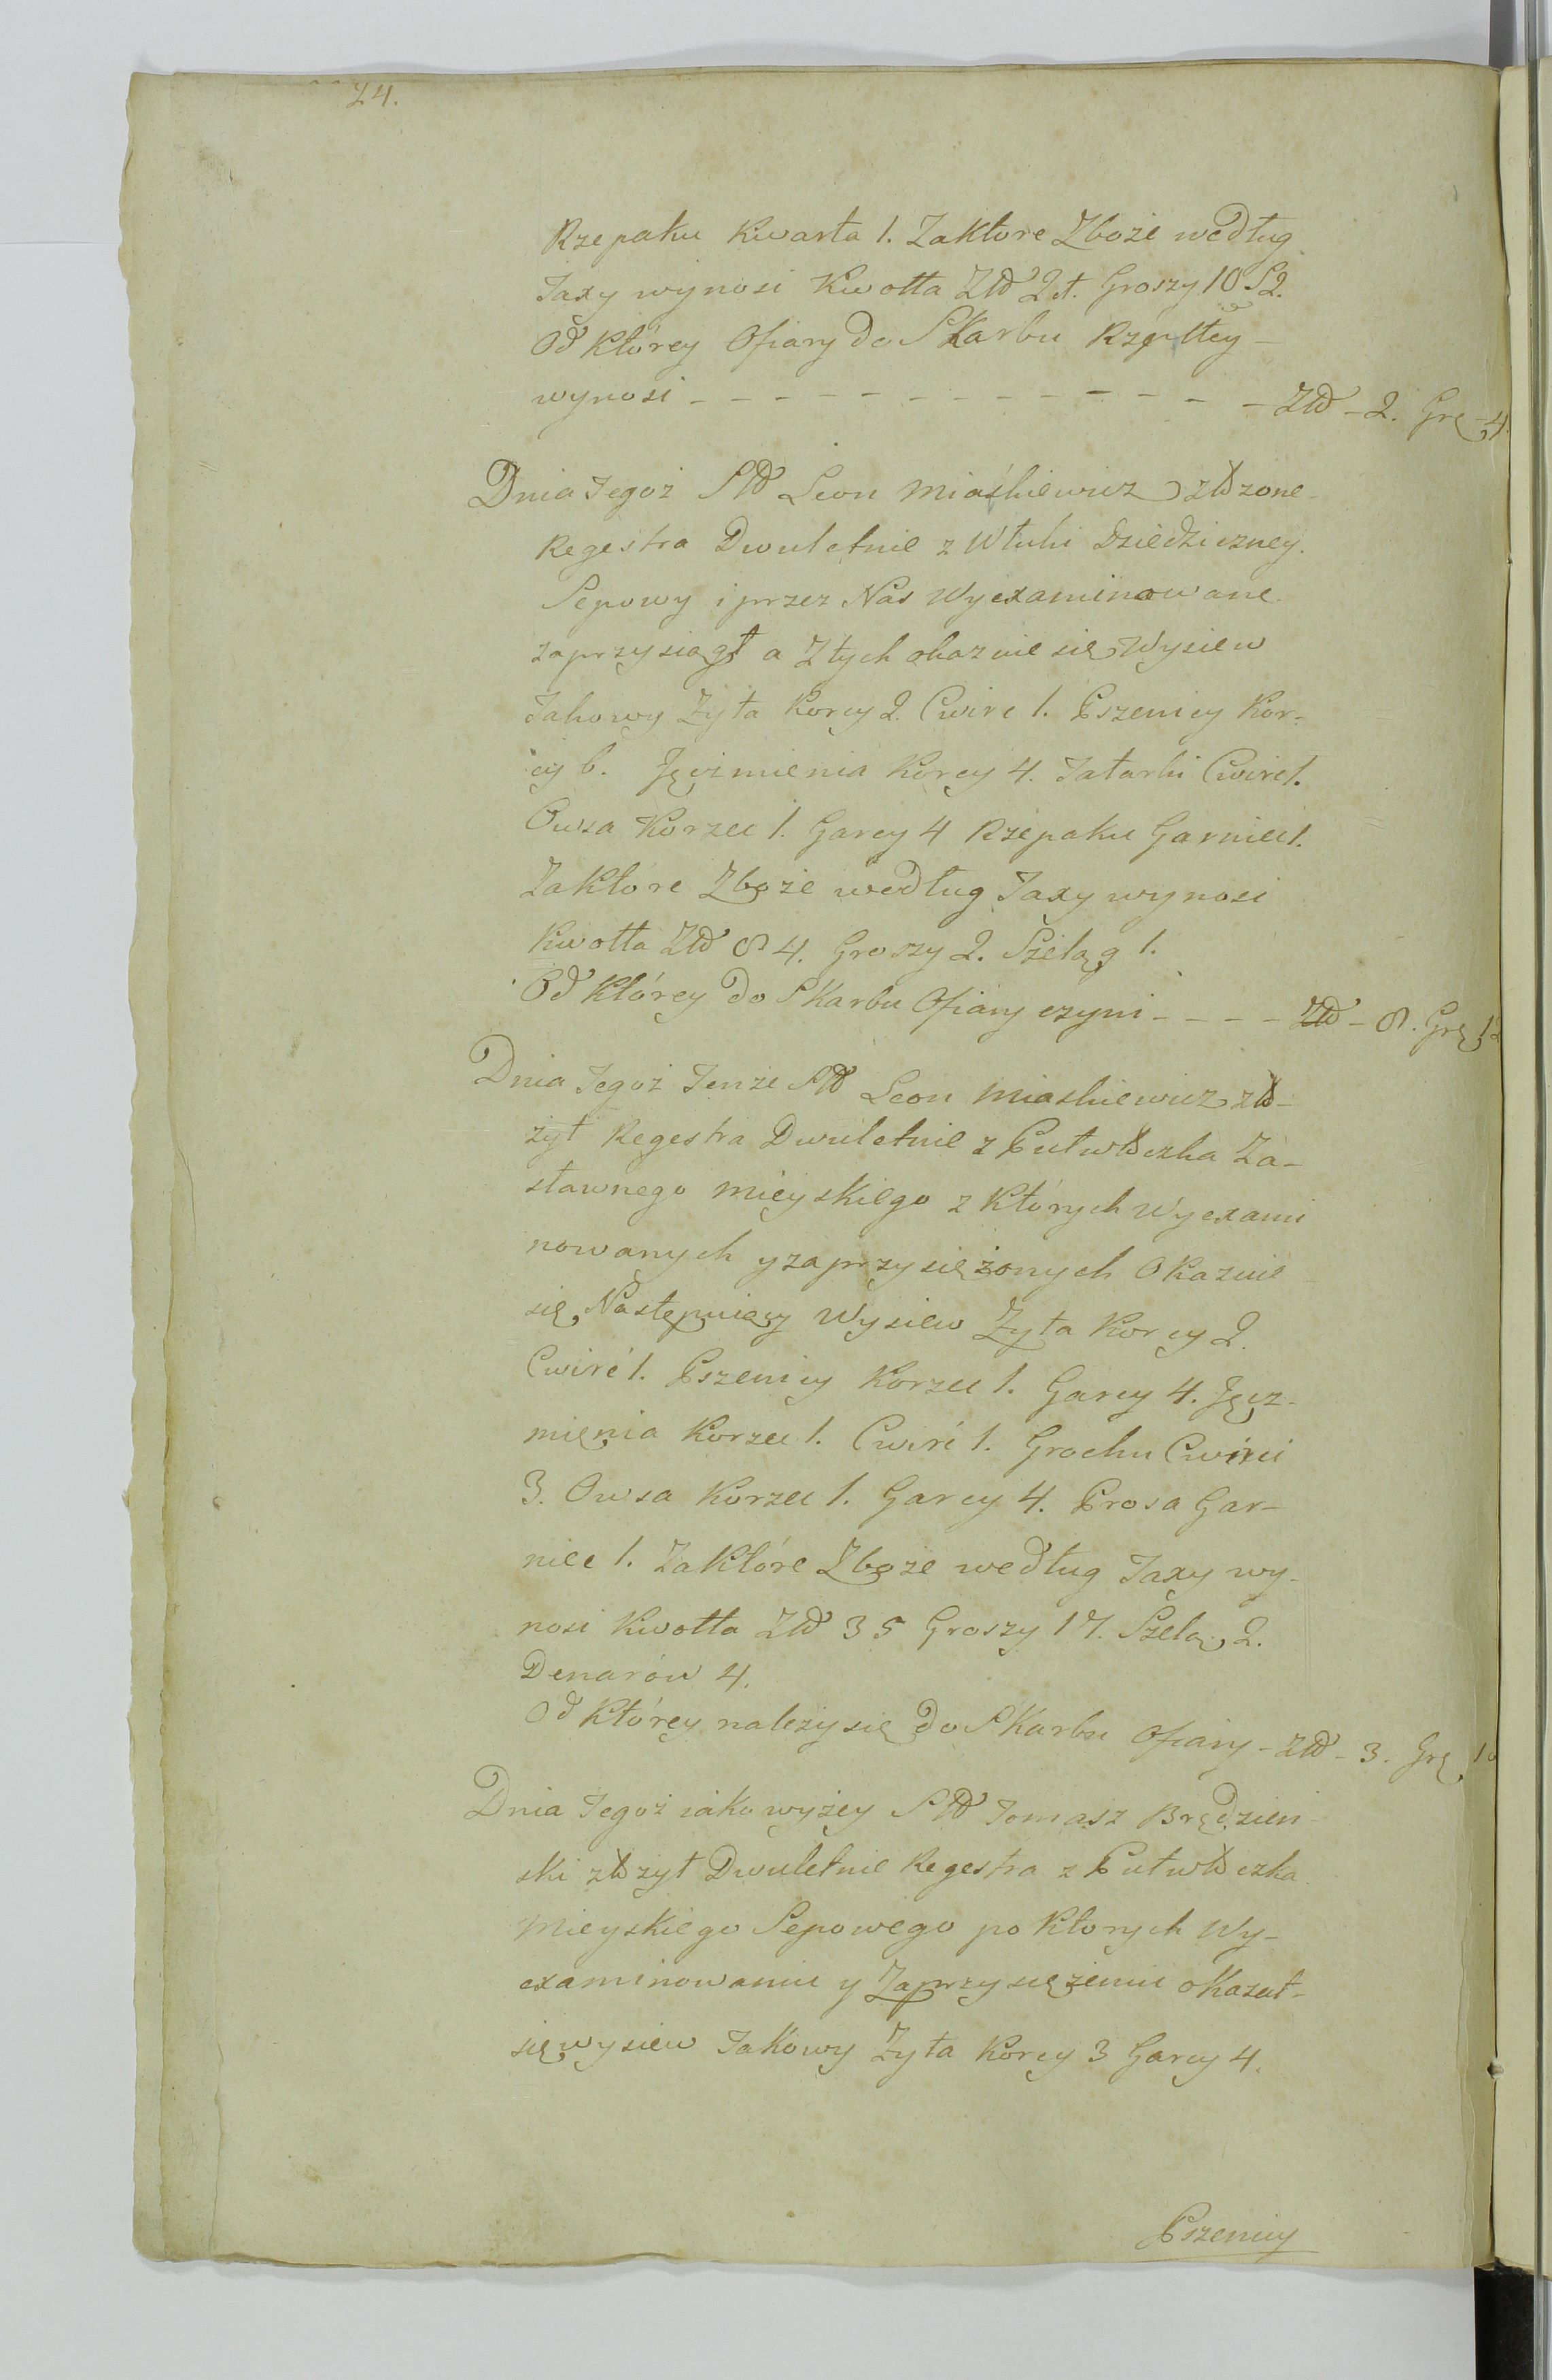 24.
Rzepaku Kwarta 1. Zaktore Zboże według
Taxy wynosi Kwotta Złł 21. Groszy 10 S2.
Od Którey Ofiary do SKarbu Rzpltey –
wynosi – – – – – – – – – – – – – Złł – 2. Grę 4.
Dnia Tegoż Sł Leon Miaśkiewicz złożone
Regestra Dwuletnie z Włuki Dziedziczney.
Sepowy i przez Nas Wyexaminowane
zaprzysiągł a Z tych okazuie się Wysiew
Takowy Zyta Korcy 2. Cwierc 1. Pszenicy Kor-
cy 6. Jęczmienia Korcy 4. Tatarki Cwierc 1.
Owsa Korzec 1. Garcy 4 Rzepaku Garniec 1.
ZaKtóre Zboże według Taxy wynosi
Kwotta Złł 84. Groszy 2. Szeląg 1.
Od Którey do SKarbu Ofiary czyni – – – – Złł – 8. Grę 12
Dnia Tegoż Tenże Sł Leon Miaskiewicz zło-
żył Regestra Dwuletnie z Pułwłoczka Za-
stawnego mieyskiego z Których Wyexami
nowanych y zaprzysiężonych OKazuie
się Następuiący Wysiew Zyta Korcy 2.
Cwierć 1. Pszenicy Korzec 1. Garcy 4. Jęcz-
mienia Korzec 1. Cwierć 1. Grochu Cwierci
3. Owsa Korzec 1. Garcy 4. Prosa Gar-
niec 1. ZaKtóre Zboże według Taxy wy-
nosi Kwotta Złł 35 Groszy 17. Szelą, 2.
Denarów 4.
Od Którey należy się do SKarbu Ofiary – Złł – 3. Grę 1
Dnia Tegoż iako wyżey Sł Tomasz Brędzień
ski złożył Dwuletnie Regestra z Pułwłoczka
Mieyskiego Sepowego po Ktorych Wy-
examinowaniu y Zaprzysiężeniu oKazał-
się wysiew TaKowy Zyta Korcy 3 Garcy 4.
Pszenicy